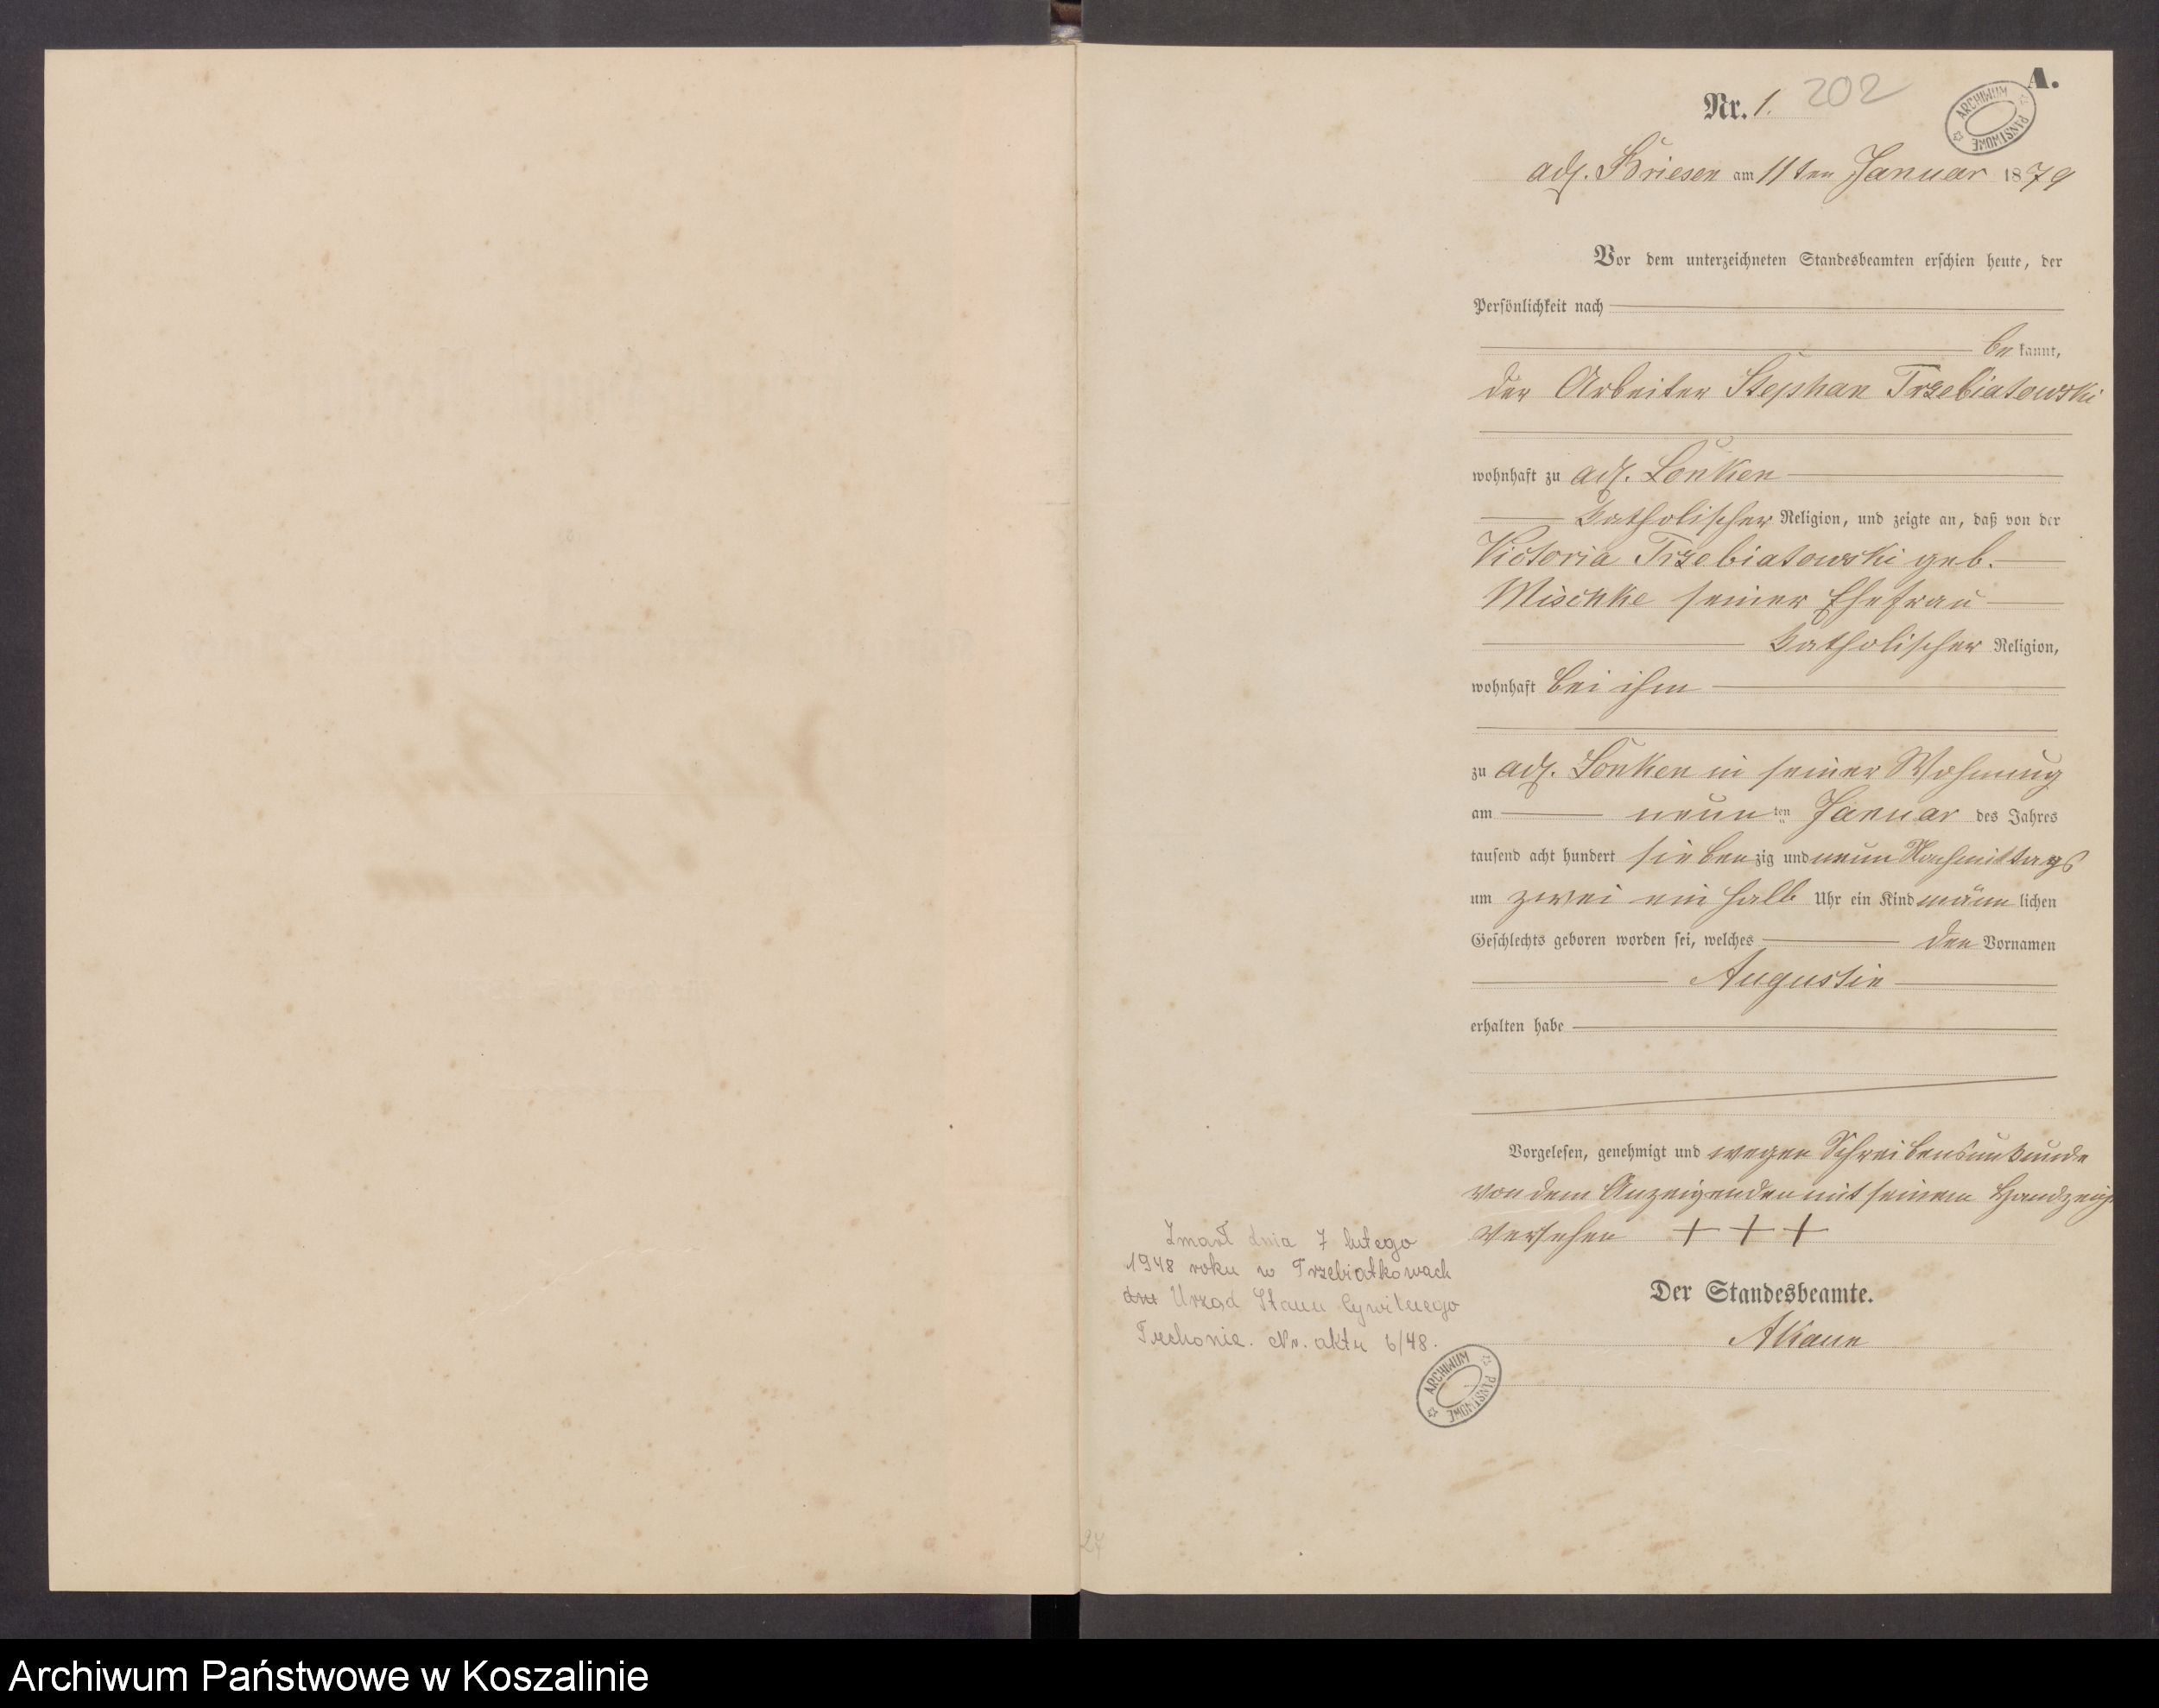 A.
Nr. 1. 202
ARCHIWUM PAŃSTWOWE
adl. Briesen am 11ten Januar 1879
Vor dem unterzeichneten Standesbeamten erschien heute, der
Persönlichkeit nach
bekannt,
der Arbeiter Stephan Trzebiatowski
wohnhaft zu adl. Lonken
katholischer Religion, und zeigte an, daß von der
Victoria Trzebiatowski geb.
Mischke seiner Ehefrau
katholischer Religion,
wohnhaft bei ihm
zu adl. Lonken in seiner Wohnung
am neunten Januar des Jahres
tausend acht hundert siebenzig und neun Nachmittags
um zwei ein halb Uhr ein Kind männlichen
Geschlechts geboren worden sei, welches den Vornamen
Augustin
erhalten habe
Vorgelesen, genehmigt und wegen Schreibensunkunde
von dem Anzeigenden mit seinem Handzeich
versehen + + +
Der Standesbeamte.
Zmarł dnia 7 lutego
1948 roku w Trzebiatkowach
Urząd Stanu Cywilnego
Nr. aktu 6/48.
ARCHIWUM PAŃSTWOWE
Archiwum Państwowe w Koszalinie